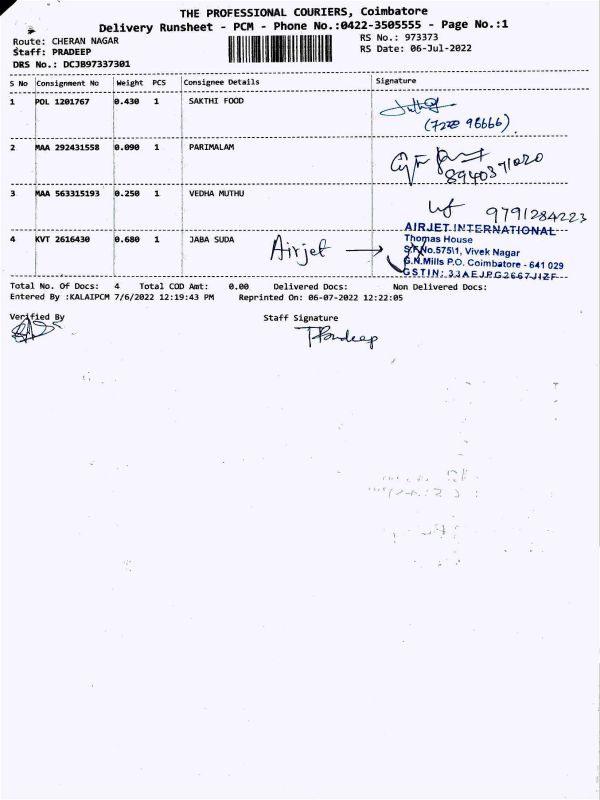 THE PROFESSIONAL COURIERS, Coimbatore
Delivery Runsheet - PCM - Phone No.:0422-3505555 - Page No.:1
Route: CHERAN NAGAR
RS No.: 973373
Staff: PRADEEP
RS Date: 06-Jul-2022
DRS No.: DCJB97337301
S No Consignment No Weight PCS Consignee Details Signature
1 POL 1201767 0.430 1 SAKTHI FOOD
96666)
2 MAA 292431558 0.090 1 PARIMALAM
8940371020
3 MAA 563315193 0.250 1 VEDHA MUTHU
9791284223
AIRJET INTERNATIONAL
4 KVT 2616430 0.680 1 JABA SUDA Airjet → Thomas House
S.F.No.575\1, Vivek Nagar
G.N.Mills P.O. Coimbatore - 641 029
GSTIN: 33AEJPG2667J1ZF
Total No. Of Docs: 4 Total COD Amt: 0.00 Delivered Docs: Non Delivered Docs:
Entered By :KALAIPCM 7/6/2022 12:19:43 PM Reprinted On: 06-07-2022 12:22:05
Verified By Staff Signature